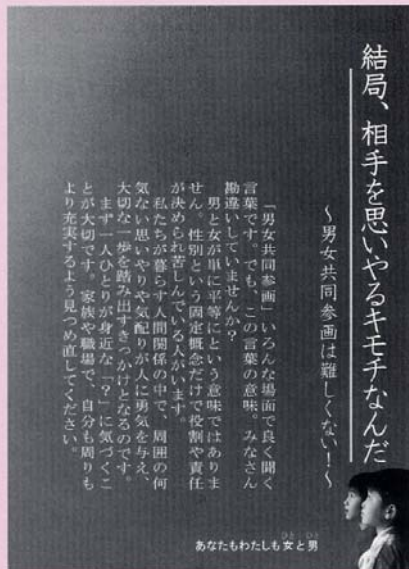 結局、相手を思いやるキモチなんだ
～男女共同参画は難しくない！～
「男女共同参画」いろんな場面で良く聞く
言葉です。でも、この言葉の意味。みなさん
勘違いしていませんか？
男と女が単に平等にという意味ではありま
せん。性別という固定概念だけで役割や責任
が決められ苦しんでいる人がいます。
私たちが暮らす人間関係の中で、周囲の何
気ない思いやりや気配りが人に勇気を与え、
大切な一歩を踏み出すきっかけとなるのです。
まず一人ひとりが身近な「？」に気づくこ
とが大切です。家族や職場で、自分も周りも
より充実するよう見つめ直してください。
あなたもわたしも女と男